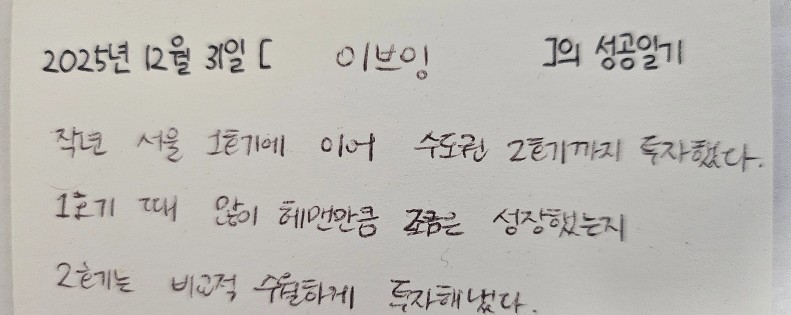 2025년 12월 31일 [ 이브잉 ]의 성공일기
작년 서울 1호기에 이어 수도권 2호기까지 투자했다.
1호기 때 많이 헤맨만큼 조금은 성장했는지
2호기는 비교적 수월하게 투자해냈다.